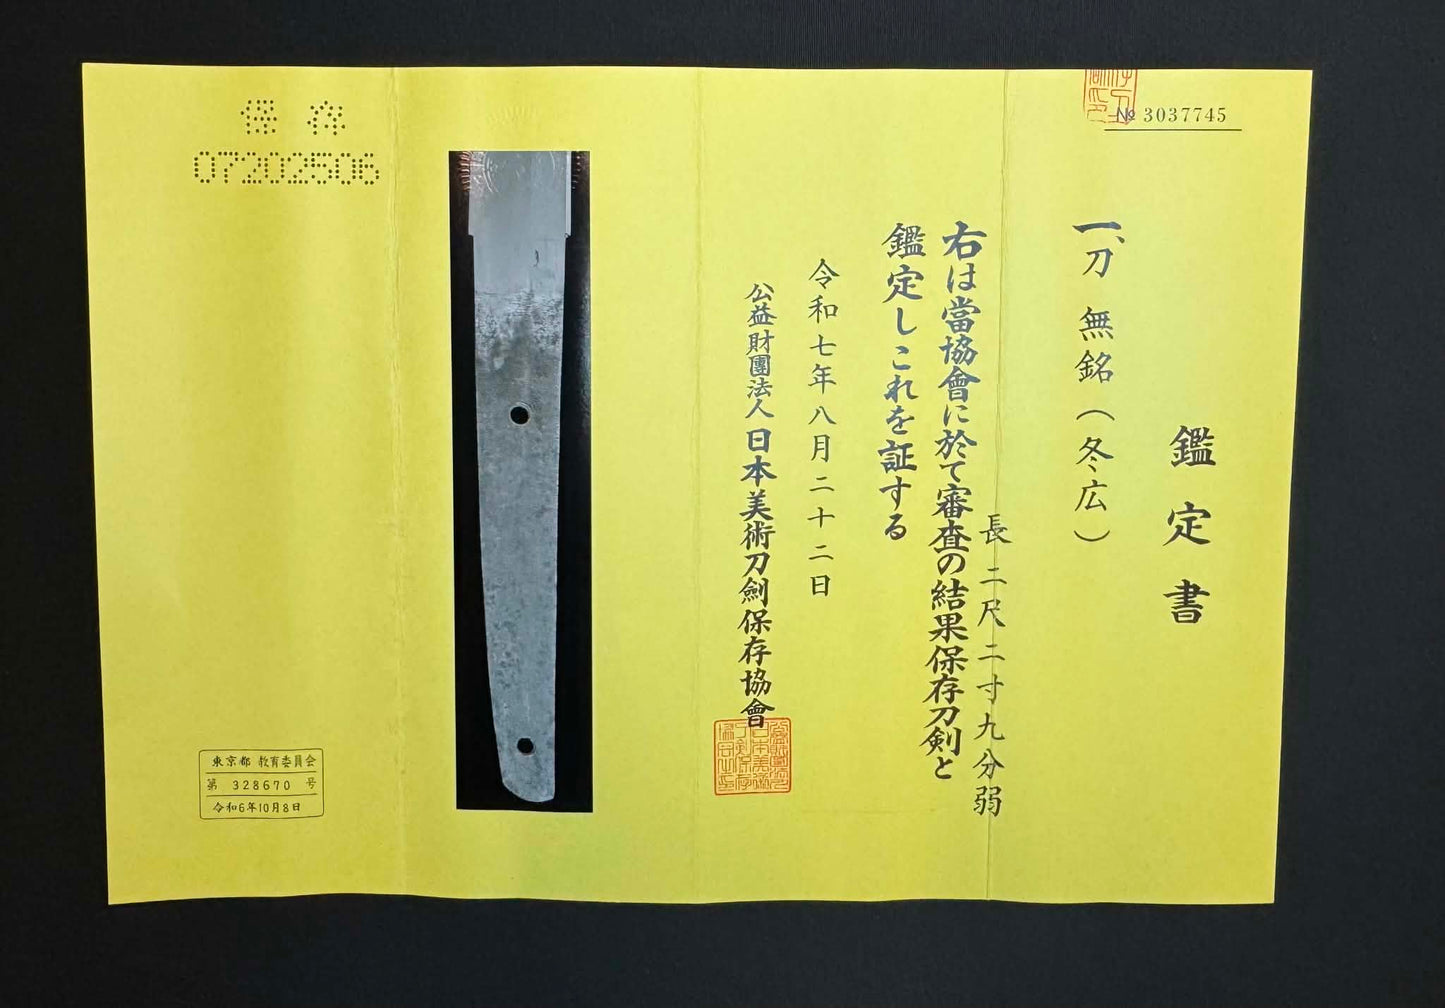 № 3037745
鑑定書
一、刀 無銘（冬広）
長二尺二寸九分弱
右は當協會に於て審査の結果保存刀剣と
鑑定しこれを証する
令和七年八月二十二日
公益財團法人日本美術刀劍保存協會
保存
07202506
東京都 教育委員会
第 328670 号
令和6年10月8日